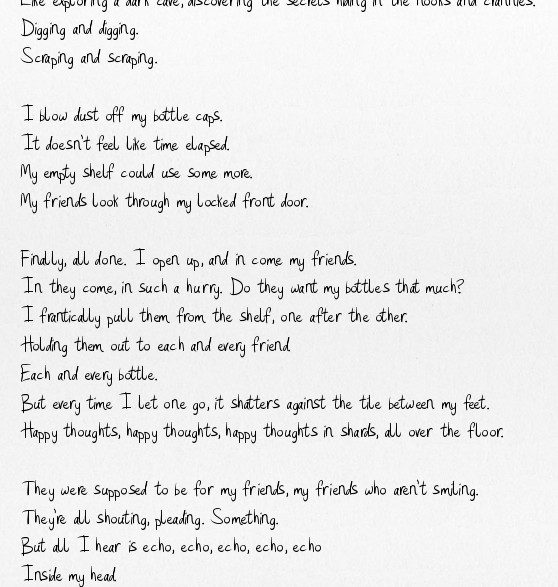 Like exploring a dark cave, discovering the secrets hiding in the nooks and crannies.
Digging and digging.
Scraping and scraping.
I blow dust off my bottle caps.
It doesn't feel like time elapsed.
My empty shelf could use some more.
My friends look through my locked front door.
Finally, all done. I open up, and in come my friends.
In they come, in such a hurry. Do they want my bottles that much?
I frantically pull them from the shelf, one after the other.
Holding them out to each and every friend
Each and every bottle.
But every time I let one go, it shatters against the tile between my feet.
Happy thoughts, happy thoughts, happy thoughts in shards, all over the floor.
They were supposed to be for my friends, my friends who aren't smiling.
They're all shouting, pleading. Something.
But all I hear is echo, echo, echo, echo, echo
Inside my head